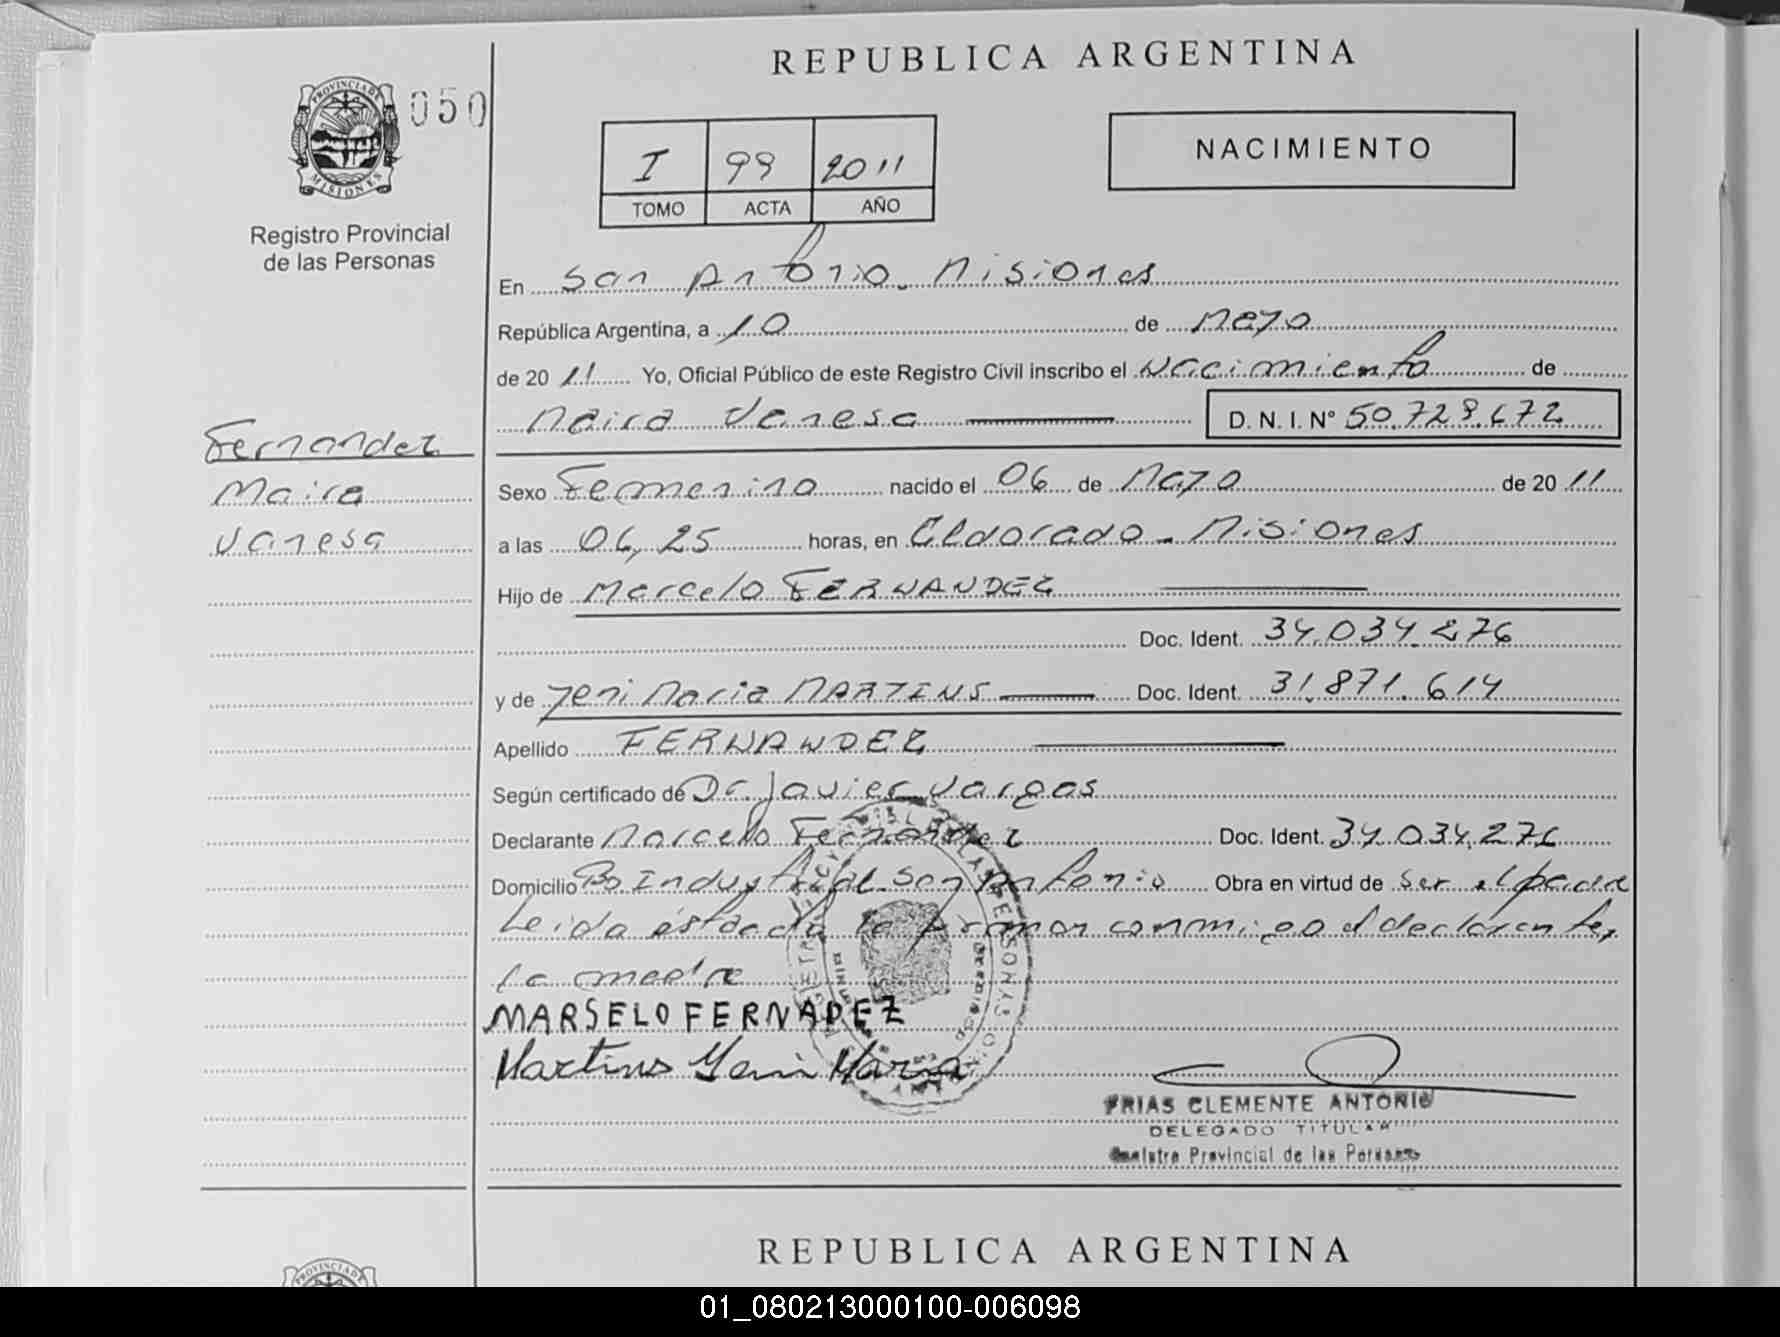 REPUBLICA ARGENTINA
PROVINCIA DE MISIONES
050
Registro Provincial
de las Personas
I 99 2011
TOMO ACTA AÑO
NACIMIENTO
En San Antonio. Misiones
República Argentina, a 10 de Mayo
de 2011 Yo, Oficial Público de este Registro Civil inscribo el Nacimiento de
Maira Vanesa D. N. I. N° 50.728.672
Fernandez
Maira
Vanesa
Sexo Femenino nacido el 06 de Mayo de 2011
a las 06,25 horas, en Eldorado - Misiones
Hijo de Marcelo FERNANDEZ
Doc. Ident. 34.034.276
y de Yeni Maria MARTINS Doc. Ident. 31.871.614
Apellido FERNANDEZ
Según certificado de Dr Javier Vargas
Declarante Marcelo Fernandez Doc. Ident. 34.034.276
Domicilio Bo Industrial San Antonio Obra en virtud de ser el padre
Leida ésta acta la firman conmigo el declarante y
la madre
MARSELO FERNADEZ
Martins Yeni Maria
FRIAS CLEMENTE ANTONIO
DELEGADO TITULAR
Registro Provincial de las Personas
REPUBLICA ARGENTINA
01_080213000100-006098